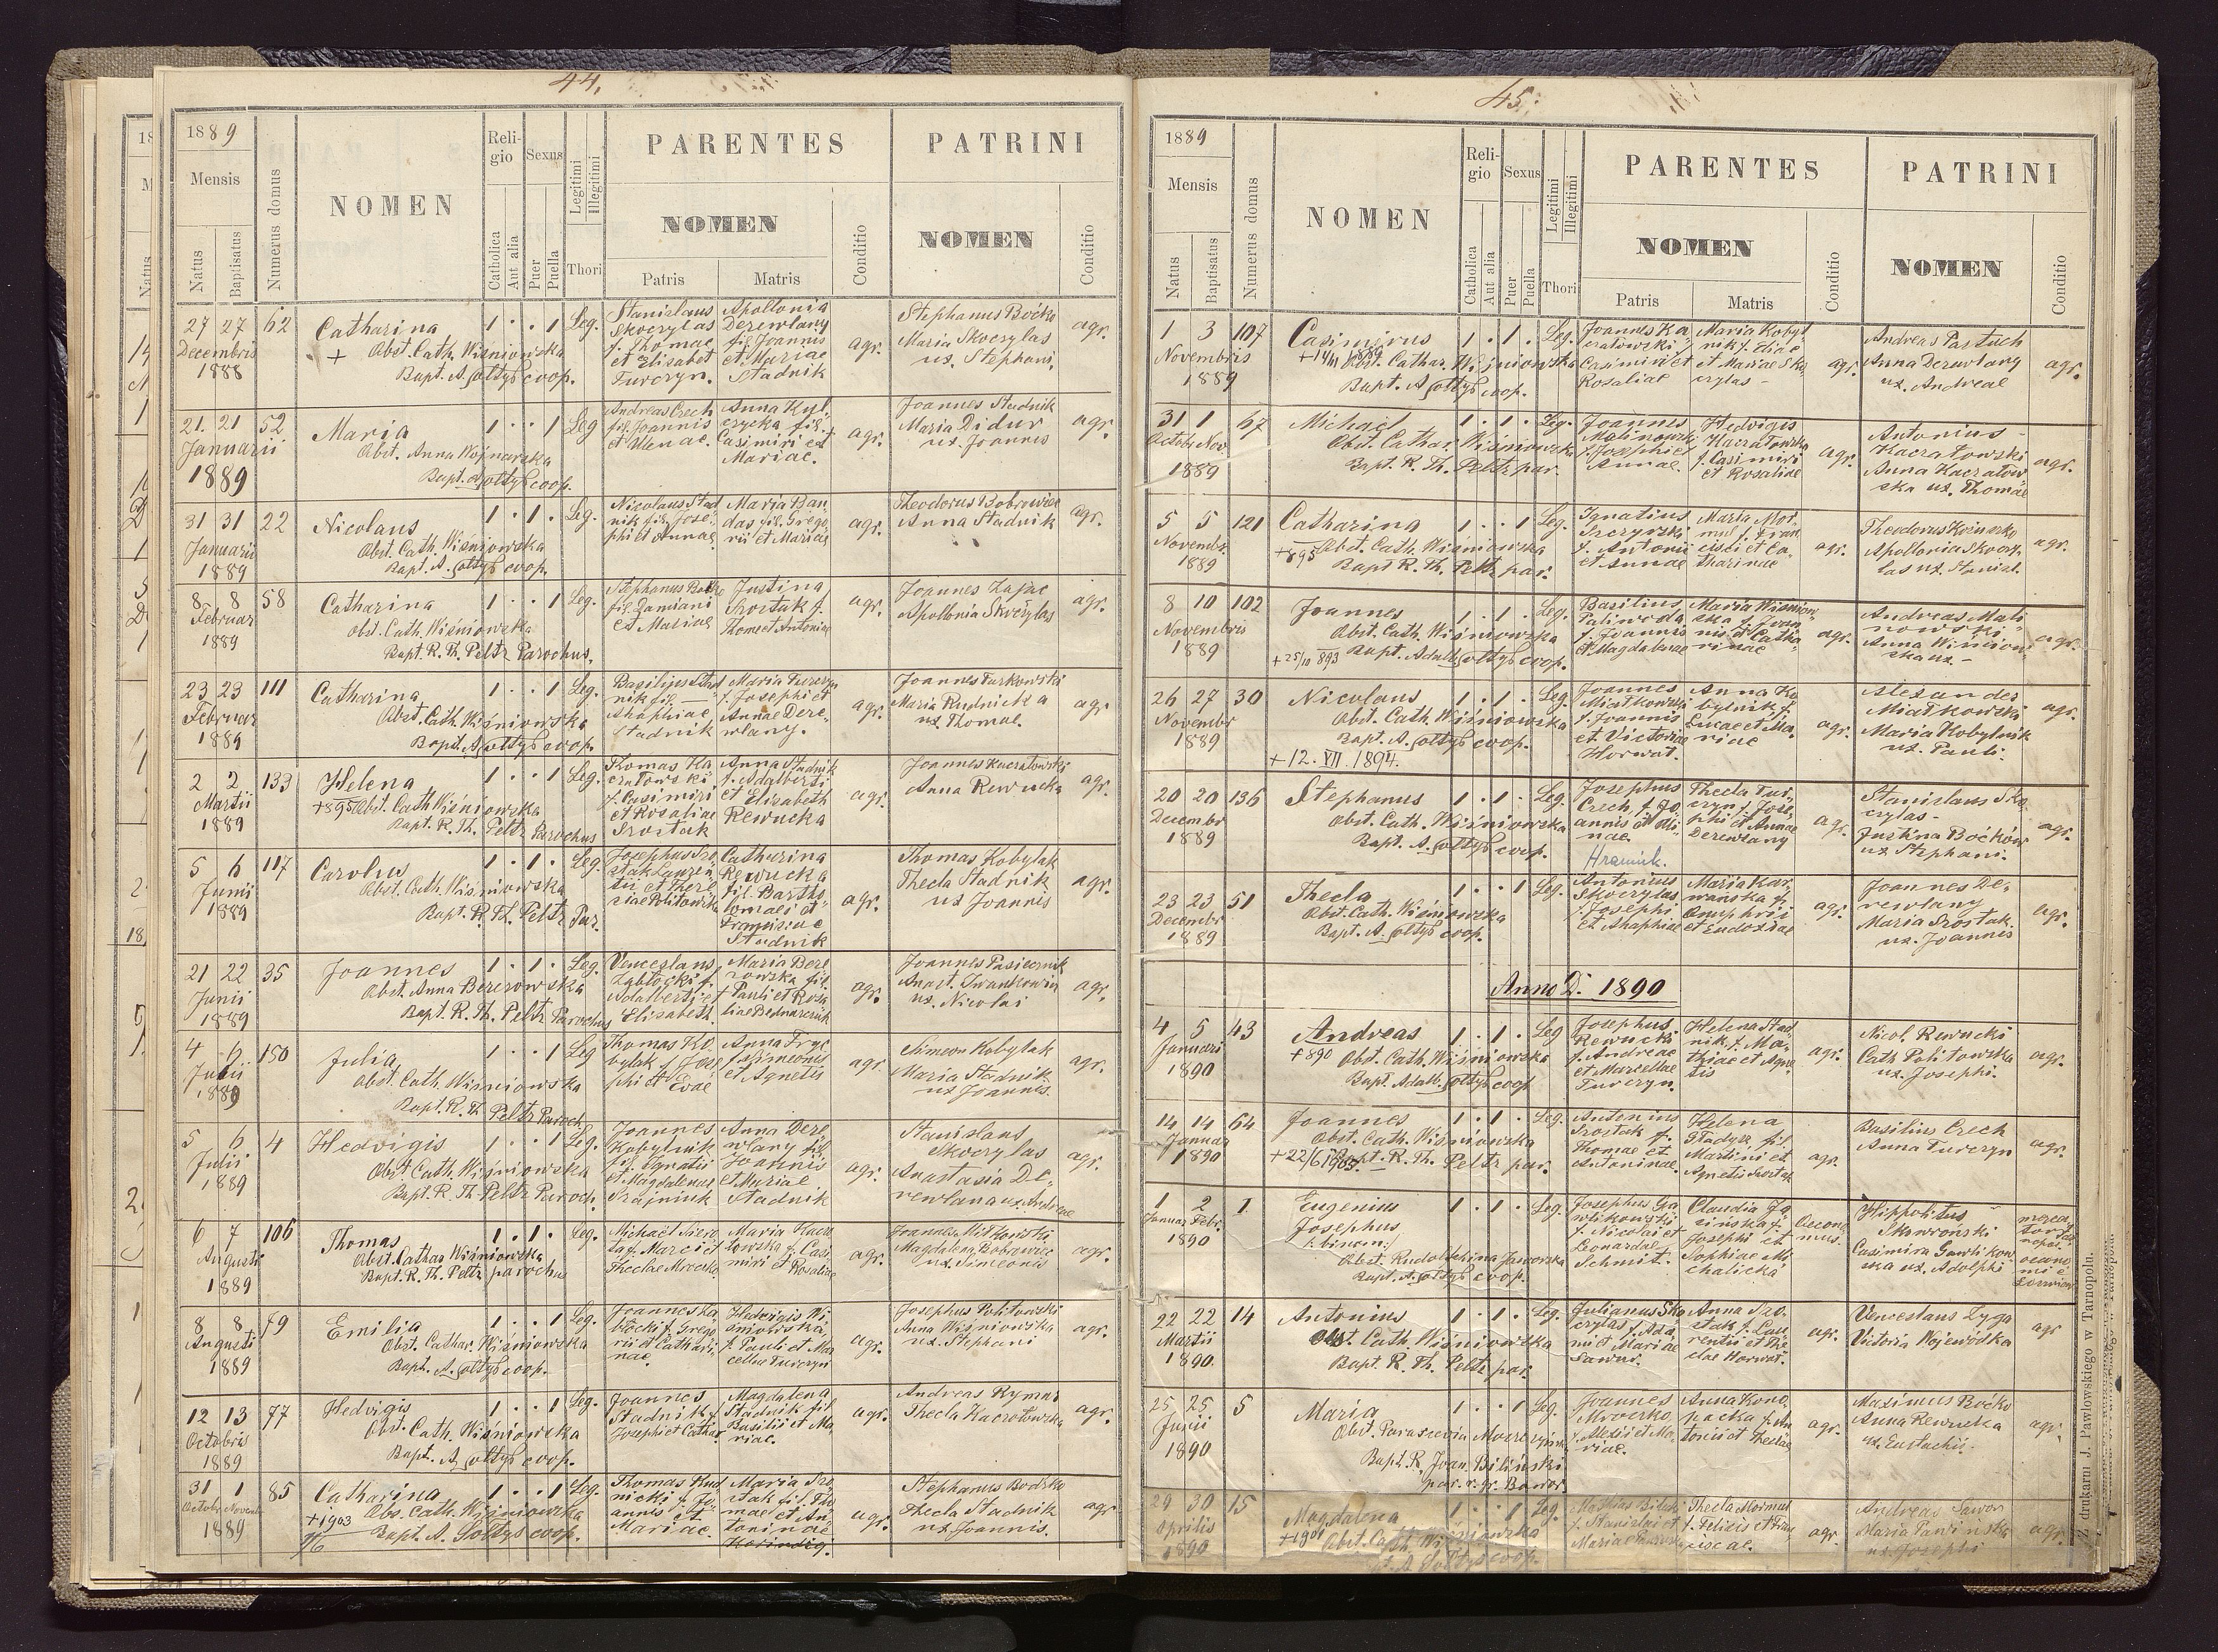 44.
1889
Mensis
Natus
Baptisatus
Numerus domus
NOMEN
Religio
Catholica
Aut alia
Sexus
Puer
Puella
Legitimi
Illegitimi
Thori
PARENTES
NOMEN
Patris
Matris
Conditio
PATRINI
NOMEN
Conditio
27 27 62 Catharina 1 · · 1 Leg. Stanislaus Apollonia Stephanus Boćko
Decembris + Obst. Cath. Wiśniowska Skoczylas Derewlany Maria Skoczylas agr.
1888 Bapt. A. Sołtys coop. f. Thomae fil. Joannis agr. ux. Stephani.
et Elisabet et Mariae
Turczyn. Stadnik
21. 21 52 Maria 1 · · 1 Leg Andreas Czech Anna Joannes Stadnik
Januarii Obst. Anna fil. Joannis fil. agr. Maria Didur agr.
1889 Bapt. A. Sołtys coop. et Casimiri et ux. Joannis
Mariae.
31 31 22 Nicolaus 1 · 1 · Leg. Nicolaus Stad Maria Ban Theodorus Bobrowiec
Januarii Obst. Cath. Wiśniowska nik fil. Jose das fil. Grego agr. Anna Stadnik agr.
1889 Bapt. A. Sołtys coop. phi et Annae rii et Mariae
8 8 58 Catharina 1 · · 1 Leg. Stephanus Justina Joannes Zając
Februar Obst. Cath. Wiśniowska fil. Damiani Szostak f. agr. Apollonia Skoczylas agr.
1889 Bapt. R. Th. Peltz Parochus. et Mariae Thomae et Antoniae
23 23 111 Catharina 1 · · 1 Leg. Basilius Stad Maria Turczyn Joannes Turkowski
Februar Obst. Cath. Wiśniowska nik fil. — f. Josephi et agr. Maria Rudnicka agr
1889 Bapt. A. Sołtys coop. Ahaphiae Annae Dere- ux. Thomae.
Stadnik wlany.
2 2 133 Helena 1 · · 1 Leg. Thomas Ka Anna Stadnik Joannes Kaczatowski
Martii +895 Obst. Cath Wiśniowska czatowski f. Adalberti Anna Rewucka agr.
1889 Bapt. R. Th. Peltz Parochus f. Casimiri et Elisabeth agr.
et Rosaliae Rewucka
Szostak
5 6 117 Carolus 1 · 1 · Leg. Josephus Szo Catharina Thomas Kobylak
Junii Obst. Cath. Wiśniowska stak Lauren Rewucka Thecla Stadnik agr.
1889 Bapt. R. Th. Peltz Par. tii et There fil. Bartho agr. ux Joannis
siae Politowska lomaei et
Franciscae
Stadnik
21 22 35 Joannes 1 · 1 · Leg. Venceslaus Maria Bere Joannes Pasiecznik
Junii Obst. Anna Berezowska Zabłocki f. zowska fil. agr. agr.
1889 Bapt. R. Th. Peltz Parochus Adalberti et Pauli et Rosa ux. Nicolai
Elisabeth. liae Bednarczuk
4 6 150 Julia 1 · · 1 Leg Thomas Ko Anna Simeon Kobylak
Julii Obst. Cath. Wiśniowska bylak f. Jose f. Simeonis agr. Maria Stadnik agr.
1889 Bapt. R. Th Peltz Paroch phi et Evae et Agnetis ux Joannis.
5 6 4 Hedvigis 1 · · 1 Leg. Joannes Anna Dere Stanislaus
Julii Obst Cath. Wiśniowska Kobylnik wlany fil. Skoczylas agr.
1889 Bapt. R. Th Peltz Paroch. fil. Ignatii Joannis agr. Anastasia De-
et Magdalenae et Mariae rewlana ux. Andreae
Stadnik
6 7 106 Thomas 1 · 1 · Leg. Michael Maria Kacza Joannes
Augusti Obst. Cathar Wiśniowska f. Marci et towska f. Casi agr. Magdalena Bobrowiec agr.
1889 Bapt. R. Th. Peltz parochus Theclae miri et Rosaliae ux. Simeonis
8 8 79 Emilia 1 · · 1 Leg. Joannes Hedvigis Wi Josephus Politowski
Augusti Obst. Cathar. Wiśniowska f. Grego śniowska agr. Anna Wiśniowska agr.
1889 Bapt. A. Sołtys coop. rii et Cathari- f. Pauli et Mar ux. Stephani
nae. cellae Turczyn
12 13 77 Hedvigis 1 · · 1 Leg. Joannes Magdalena Andreas Rymar
Octobris Obst. Cath. Wiśniowska Stadnik f. Stadnik fil agr. Thecla Kaczatowska agr.
1889 Bapt. A. Sołtys coop. Josephi et Cathar. Basilii et Ma
riae.
31 1 85 Catharina 1 · · 1 Leg. Thomas Rud Maria Szo Stephanus
Octobr Novem +1903 Obs. Cath. Wiśniowska nicki f. Jo stak fil. Tho agr. Thecla Stadnik agr
1889 Bapt. A. Sołtys coop. annis et mae et An ux Joannis.
Mariae. toninae
45.
1889
Mensis
Natus
Baptisatus
Numerus domus
NOMEN
Religio
Catholica
Aut alia
Sexus
Puer
Puella
Legitimi
Illegitimi
Thori
PARENTES
NOMEN
Patris
Matris
Conditio
PATRINI
NOMEN
Conditio
1 3 107 Casimirus 1 · 1 · Leg. Joannes Ka Maria Kobyl Andreas Pastuch
Novembris Obst. Cathar. Wiśniowska czatowski nik f. Eliae agr. Anna Derewlany agr.
1889 Bapt. A. Sołtys coop. Casimiri et et Mariae Sko ux. Andreae
Rosaliae czylas -
31 1 67 Michael 1 · 1 · Leg. Joannes Hedvigis Antonius -
Octob. Nov. Obst. Cathar. Wiśniowska Malinowski Kaczatowska agr. Kaczatowski agr.
1889 Bapt. R. Th. Peltz par. f. Josephi et f. Casimiri Anna Kaczatow
Annae. et Rosaliae ska ux. Thomae
5 5 121 Catharina 1 · · 1 Leg. Ignatius Maria Mor- Theodorus
Novembr. +895 Obst. Cath. Wiśniowska mul f. Fran agr. Apollonia Skoczy- agr.
1889 Bapt R. Th. Peltz par. f. Antonii cisci et Ca- las ux. Stanisl.
et Annae tharinae
8 10 102 Joannes 1 · 1 · Leg. Basilius Maria Wiśniow Andreas Mali
Novembris Obst. Cath. Wiśniowska Paliwoda ska f. Joan agr. nowski agr.
1889 +25/10 893 Bapt. Adalb. Sołtys coop. f. Joannis nis et Catha- Anna Wiśniow-
et Magdalenae rinae ska ux. -
26 27 30 Nicolaus 1 · 1 · Leg Joannes Anna Ko Alexander
Novembr Obst. Cath. Wiśniowska Miatkowski bylnik f. Miatkowski agr.
1889 Bapt. A. Sołtys coop. f. Joannis Lucae et Ma- agr. Maria Kobylnik
+12. VII. 1894. et Victoriae riae ux. Pauli.
Horwat.
20 20 136 Stephanus 1 · 1 · Leg. Josephus Thecla Tur- Stanislaus Sko
Decembr Obst. Cath. Wiśniowska Czech f. Jo czyn f. Jose agr. czylas - agr.
1889 Bapt. A. Sołtys coop. annis et He- phi et Annae Justina Boćków
nae. Derewlany ux Stephani.
23 23 51 Thecla 1 · · 1 Leg. Antonius Maria Kar- Joannes De-
Decembr Obst. Cath. Wiśniowska Skoczylas wańska f. agr. rewlany agr.
1889 Bapt. A. Sołtys coop. f. Josephi Onuphrii Maria Szostak
et Ahaphiae et Eudoxiae ux. Joannis
Anno D. 1890
4 5 43 Andreas 1 · 1 · Leg Josephus Helena Stad- Nicol. Rewucki
Januari +890 Obst. Cath. Wiśniowska Rewucki nik f. Ma- agr. Cath Politowska agr.
1890 Bapt. Adalb. Sołtys coop f. Andreae thiae et Agne ux. Josephi.
et Marcellae tis
Turczyn.
14 14 64 Joannes 1 · 1 · Leg. Antonius Helena Basilius Czech
Januar Obst. Cath. Wiśniowska Szostak f. fil. Anna Turczyn agr.
1890 Bapt. R. Th. Peltz par. Thomae et Martini et agr.
Antoninae. Agnetis Szostak
1 2 1. Eugenius 1 · 1 · Leg. Josephus Ga Claudia Ja Oecono Hippolitus
Januar Febr. Josephus wlikowski sińska f. mus. Skawroński
1890 (:binom:) f. Nicolai et Josephi et Casimira Gawlikow
Obst. Rudolphina Janowska Leonardae Sophiae Mi ska ux. Adolphi
Bapt. A. Sołtys coop. Schmit. chalicka
22 22 14 Antonius 1 · 1 · Leg. Julianus Sko Anna Szo- Venceslaus Zyga
Martii Obst. Cath. Wiśniowska czylas f. Ada stak f. Lau agr. Victoria Wojewódka agr
1890. Bapt. R. Th. Peltz par. mi et Mariae rentii et The
clae Horwat.
25 25 5 Maria 1 · · 1 Leg. Joannes Anna Kono Maximus Boćko
Junii Obst. Parascevia Mroczko packa f. An agr. Anna Rewucka agr.
1890 Bapt. R. Joan. Biliński f. Alexii et Ma- tonii et Theclae ux. Eustachii.
par. r. gr. riae.
29 30 15 Magdalena 1 · · 1 Leg. Mathias Thecla Mormul Andreas
Aprilis +1901 Obst. Cath. Wiśniowska f. Stanislai et f. Felicis et Fran agr. Maria agr.
1890 A Sołtys coop. Mariae ciscae. ux. Josephi
Z drukarni J. Pawłowskiego w Tarnopolu.